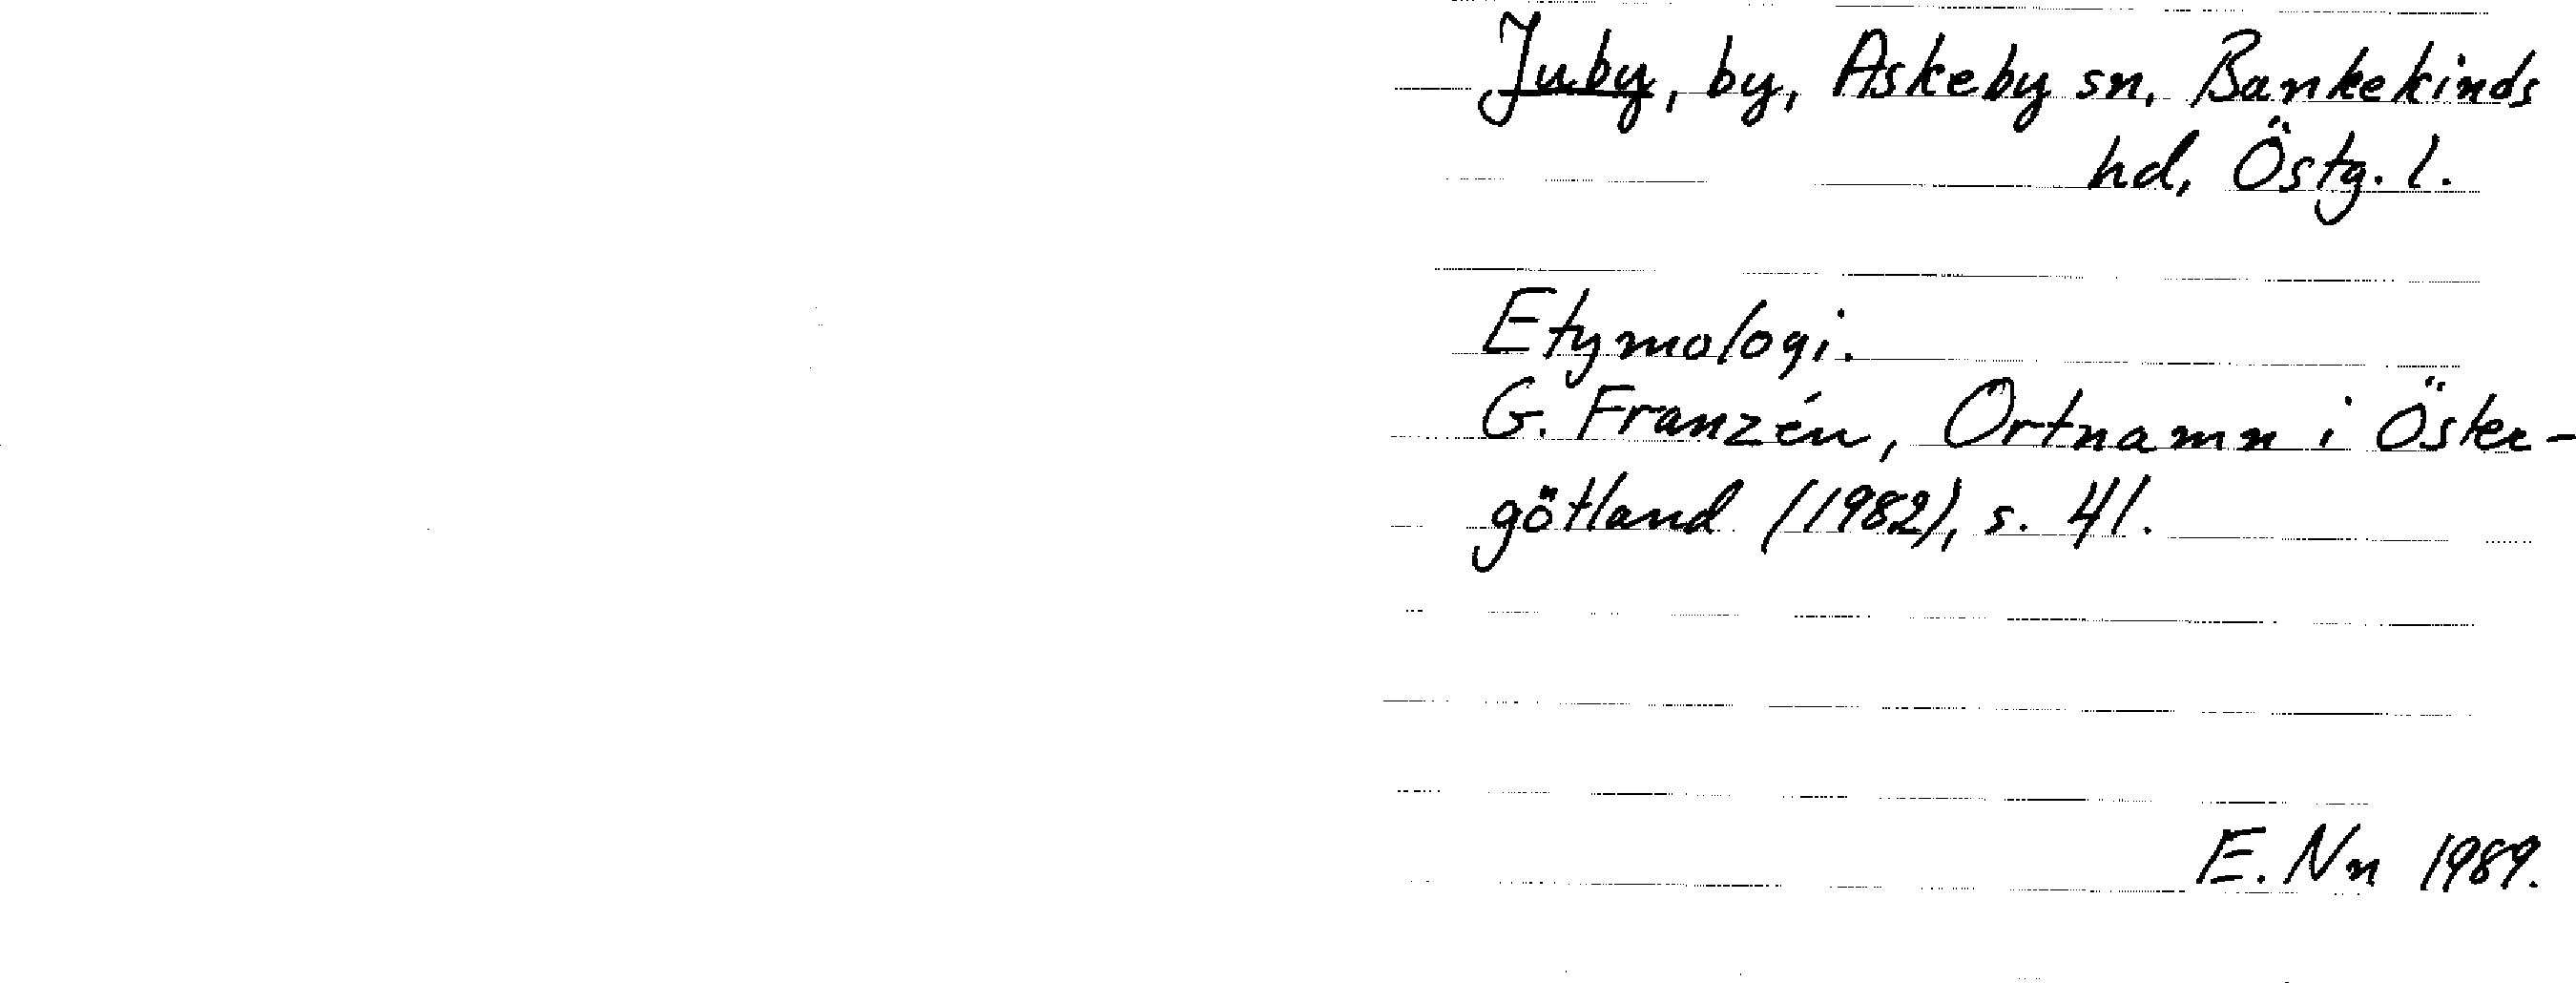 Juby, by, Askeby sn, Bankekinds
hd, Östg. l.
Etymologi.
G. Franzén, Ortnamn i Öster-
götland (1982), s. 41.
E. Nn 1989.